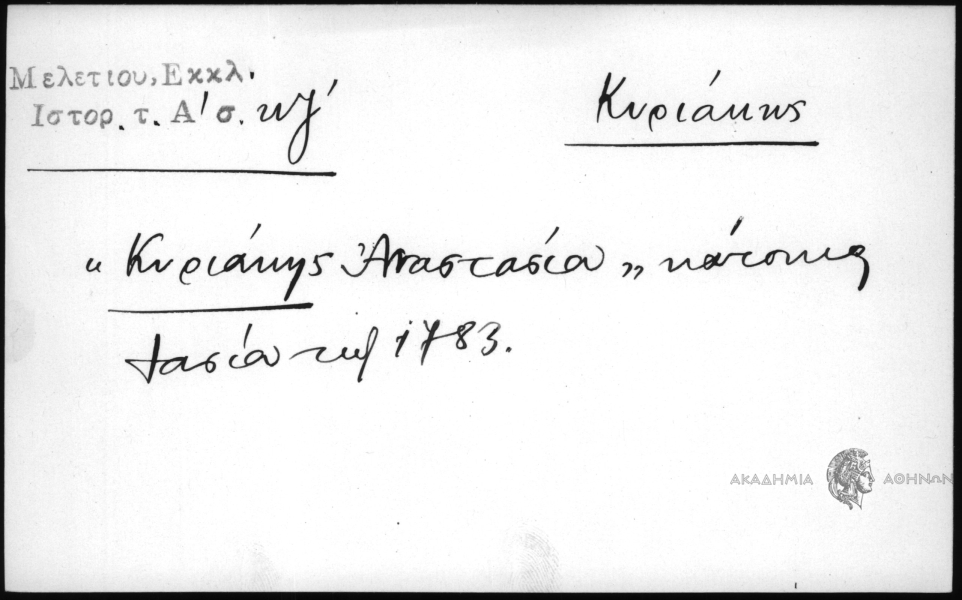 Μελετίου, Εκκλ.
Ιστορ. τ. Α' σ. κζ'
Κυριάκης
" Κυριάκης Ἀναστασίου " κάτοικος
Ἰασίου τῷ 1783.
ΑΚΑΔΗΜΙΑ ΑΘΗΝΩΝ